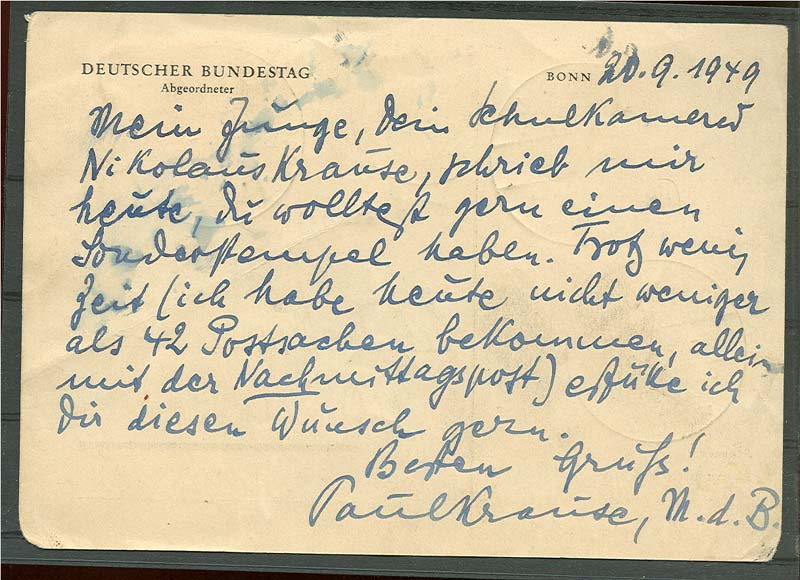 DEUTSCHER BUNDESTAG
Abgeordneter
BONN 20.9.1949
Mein Junge, Dein Schulkamerad
Nikolaus Krause, schrieb mir
heute, Du wolltest gern einen
Sonderstempel haben. Trotz wenig
Zeit (ich habe heute nicht weniger
als 42 Postsachen bekommen, allein
mit der Nachmittagspost) erfülle ich
Dir diesen Wunsch gern.
Besten Gruß!
Paul Krause, M.d.B.